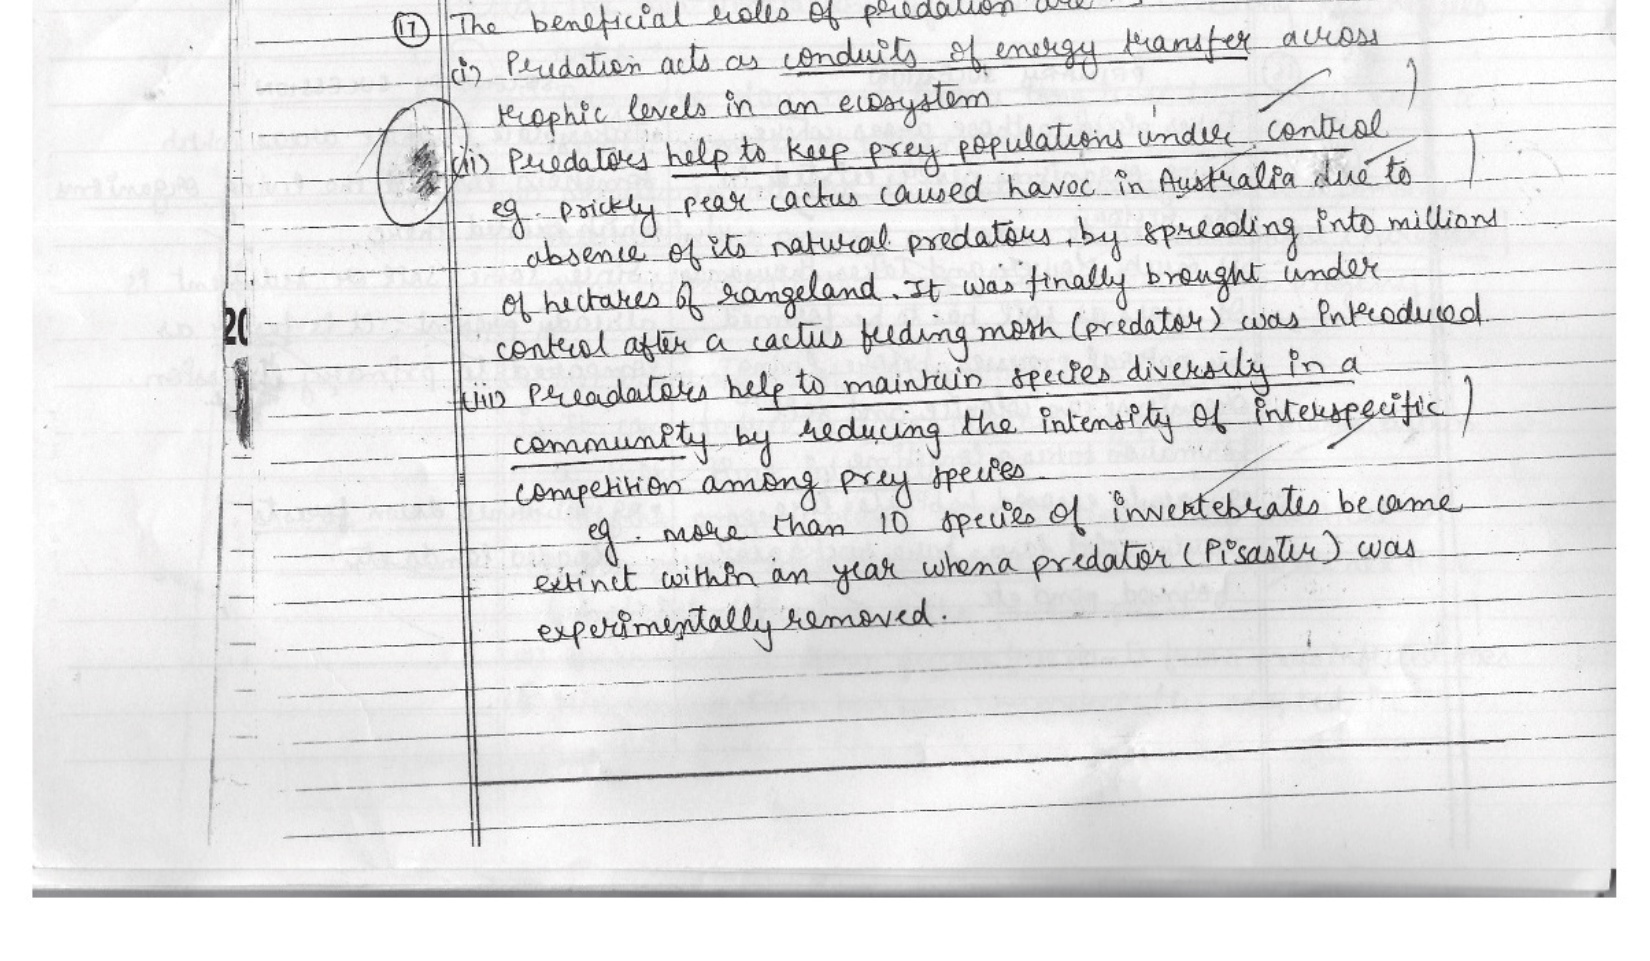 17 The beneficial roles of predation are :-
(i) Predation acts as conduits of energy transfer across
trophic levels in an ecosystem
(ii) Predators help to keep prey populations under control
eg. prickly pear cactus caused havoc in Australia due to
absence of its natural predators, by spreading into millions
of hectares of rangeland. It was finally brought under
control after a cactus feeding moth (predator) was introduced
(iii) Preadators help to maintain species diversity in a
community by reducing the intensity of interspecific
competition among prey species.
eg. more than 10 species of invertebrates became
extinct within an year when a predator (Pisaster) was
experimentally removed.
20